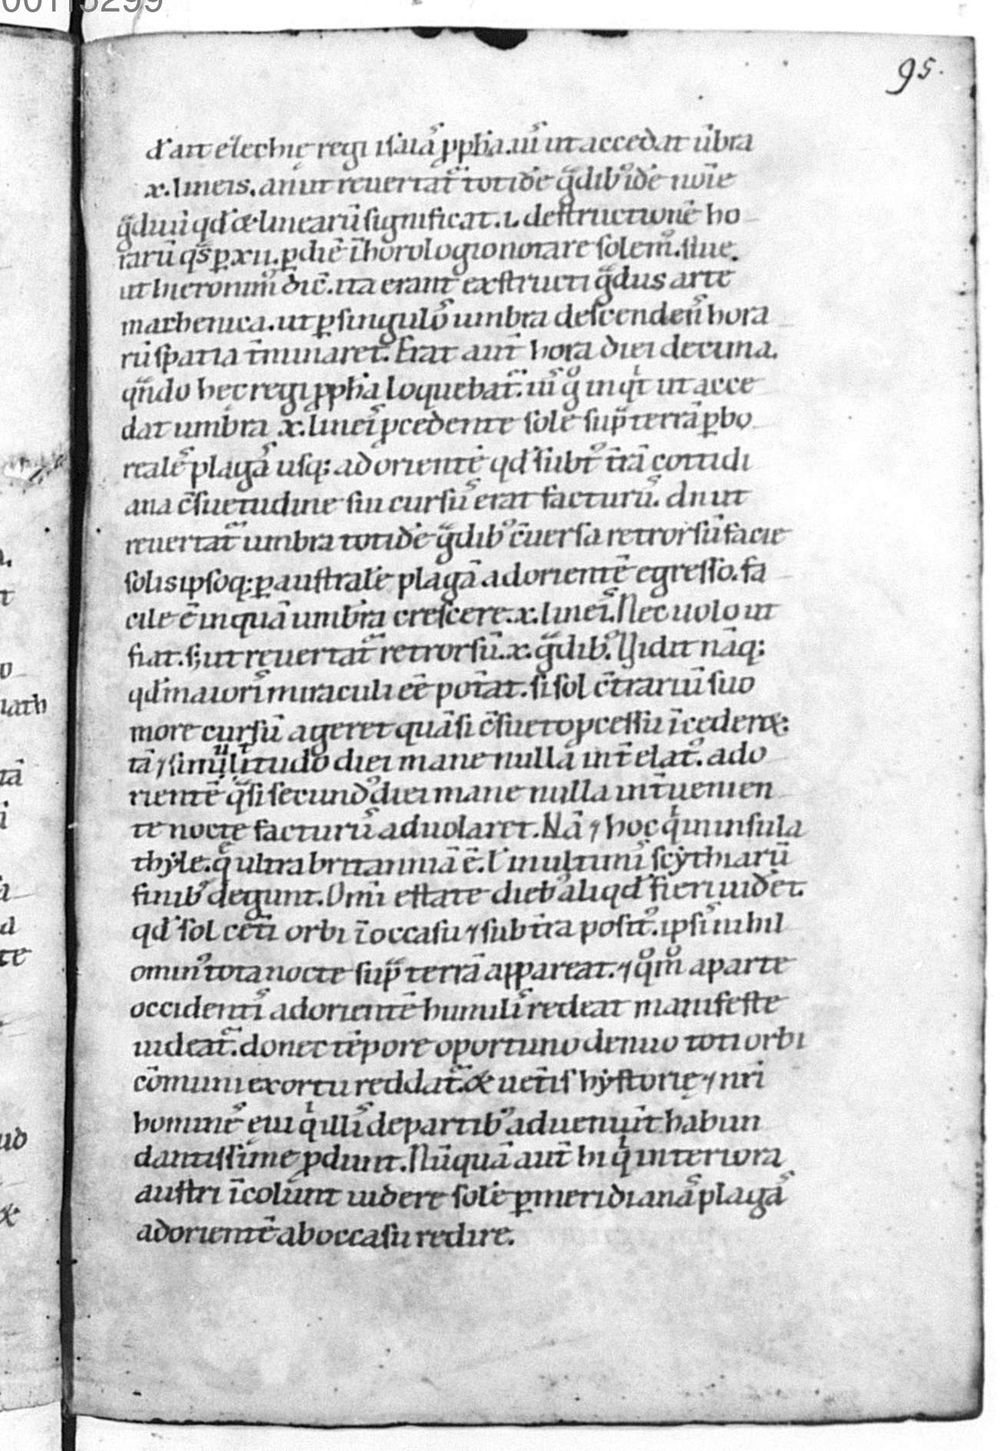 95.
d͛ait ezechię regi isaiāˢ ꝓpħa. uiˢ ut accedat ūbra
x. lineis. an ut reuertat᷑ totidē g̃dibꝰ idē noīe
g̃duū qd̓ & linearū significat. i. destructionē ho
rarū qͣs ꝑ xii. ꝑ diē ī horologio notare solemꝰ. siue
ut hieronimꝰ dic̄. ita erant exstructi g̃dus arte
mathenica. ut ꝑ singulos umbra descendenˢ hora
rū spatia t̄minaret. Erat aut̄ hora diei decima.
qn̄do hec regi ꝓpħa loquebat᷑. uiˢ g̊ inqͥt ut acce
dat umbra .x. lineiˢ p̄cedente sole suꝑ terrā ꝑ bo
realē plagā usq; ad orientē qd̓ subtꝰ t̄rā cottidi
ana c̄suetudine sui cursuˢ erat facturuˢ. an ut
reuertat᷑ umbra totidē g̃dibꝰ c̄uersa retrorsū facie
solis ipsoq; ꝑ australē plagā ad orientē egresso. fa
cile ē inquā umbrā crescere .x. lineiˢ. Nec uolo ut
fiat. s; ut reuertat᷑ retrorsū .x. g̃dibꝰ. Uidit nāq;
qd̓ maioriˢ miraculi eē pot̄at. si sol c̄trariū suo
more cursū ageret quā si c̄sueto ꝓcessu īceder&;
tā ⁊ similitudo diei mane nulla int̄elatꝰ. ad o
rientē qͣsi secundꝰ diei mane nulla int̄uenien
te nocte facturuˢ aduolaret. Nā ⁊ hoc qͥ in insula
thẏle. quę ultra brittanniā ē. ł in ultimiˢ scẏthiarū
finibꝰ degunt. Omī estate diebꝰ aliqd̓ fieri uidēt.
qd̓ sol cet̄i orbi ī occasu ⁊ sub t̄ra positꝰ. ipsiˢ nihil
ominꝰ tota nocte suꝑ terrā appareat. ⁊ qͦmͦ a parte
occidentiˢ ad orientē humiliˢ redeat manifeste
uideat᷑. donec tēpore oportuno denuo toti orbi
cōmuni exortu reddat᷑. & uet̄is hẏstorię ⁊ nr̄i
homineˢ ęui qͥ illiˢ de partibꝰ aduenium̄t habun
dantissime ꝓdunt. Nūquā aut̄ hi qͥ interiora
austri īcolunt uidere solē ꝑ meridianāˢ plagāˢ
ad orientē ab occasu redire.